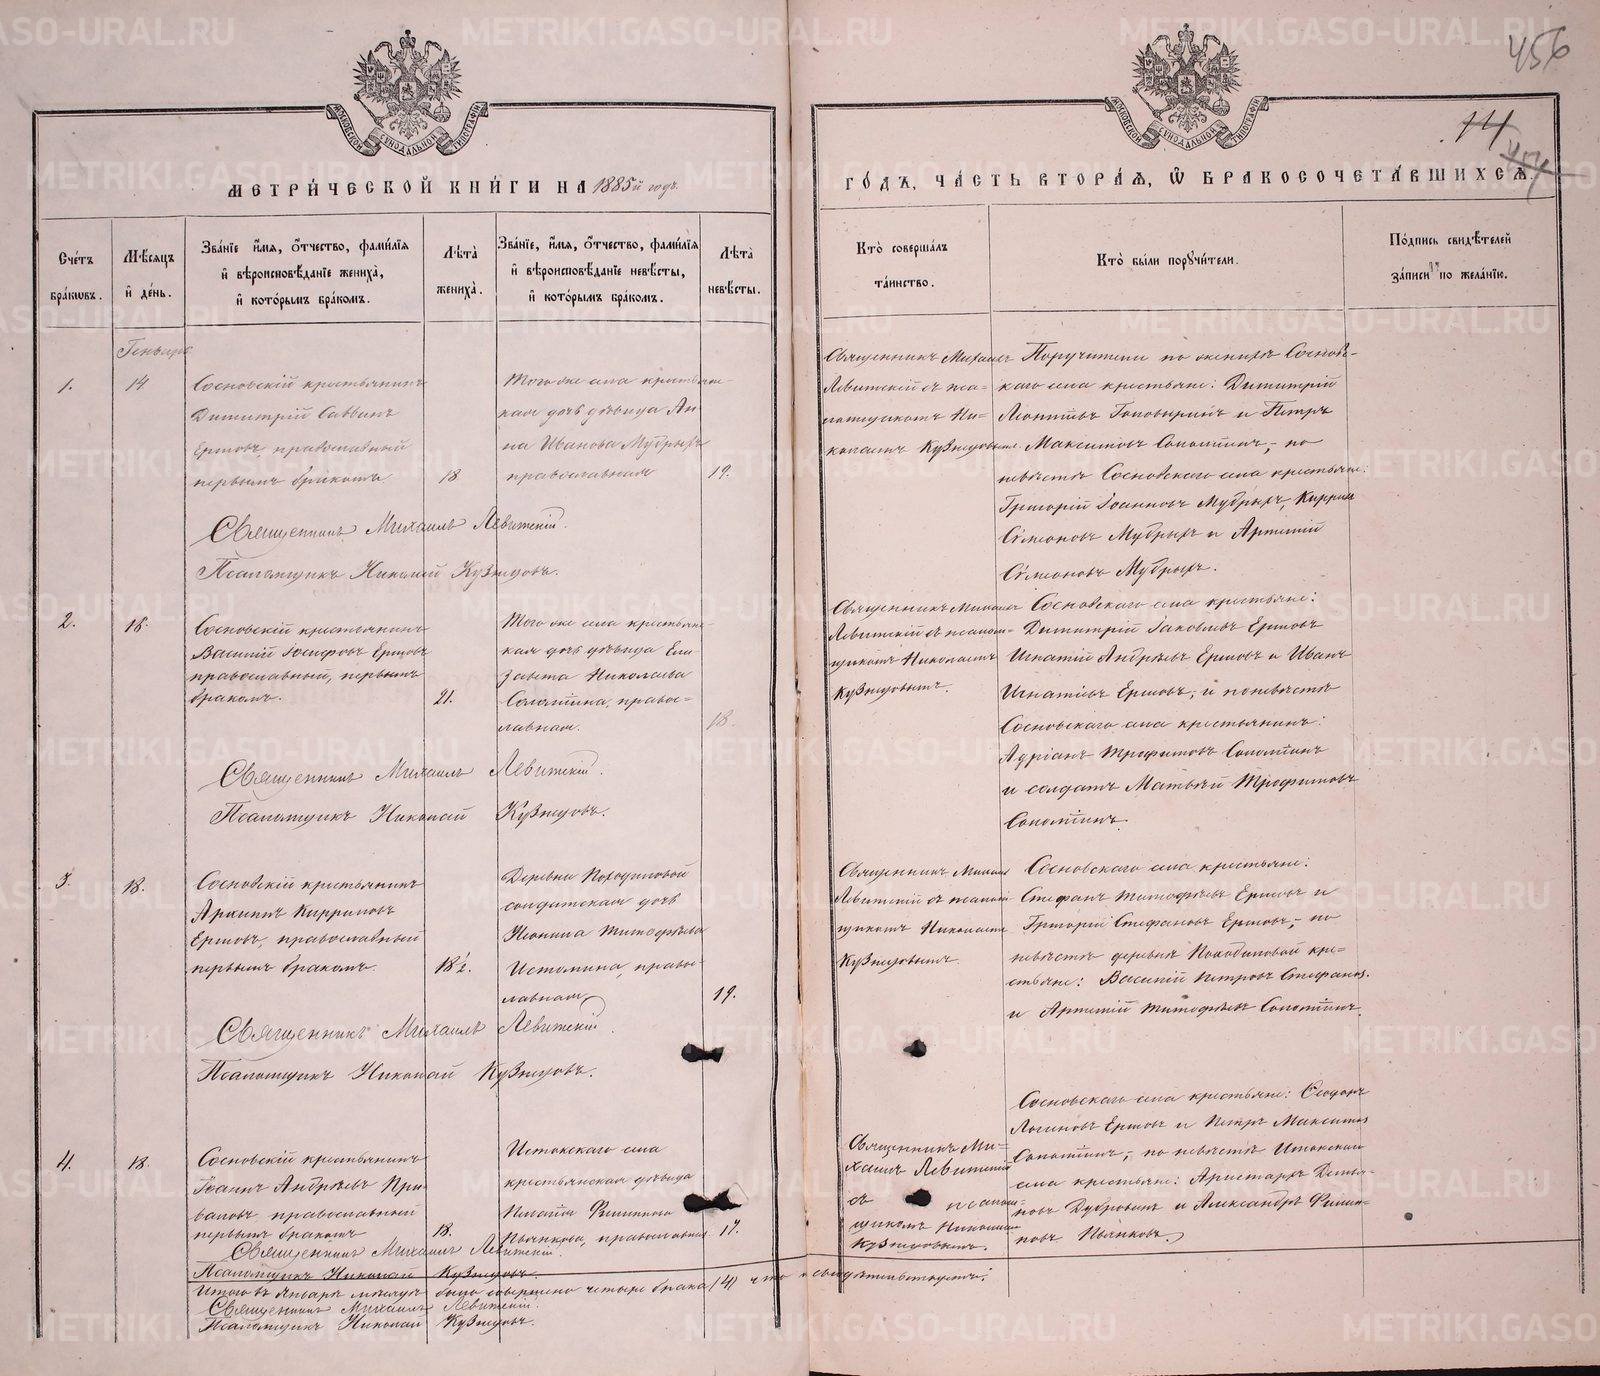 METRIKI.GASO-URAL.RU
456
14
МОСКОВСКОЙ СУНОДАЛЬНОЙ ТИПОГРАФІИ
МОСКОВСКОЙ СУНОДАЛЬНОЙ ТИПОГРАФІИ
МЕТРИ́ЧЕСКОЙ КНИ́ГИ НА 1885й годъ.
ГО́ДЪ, ЧА́СТЬ ВТОРА́Ѧ, Ѡ БРАКОСОЧЕТА́ВШИХСѦ.
Сче́тъ бра́кωвъ.
Мѣ́сѧцъ и҆ де́нь.
Зва́нїе и҆́мѧ, ѻ҆́тчество, фами́лїѧ и҆ вѣроисповѣ́данїе жениха̀, и҆ кото́рымъ бра́комъ.
Лѣ́та жениха̀.
Зва́нїе, и҆́мѧ, ѻ҆́тчество, фами́лїѧ и҆ вѣроисповѣ́данїе невѣ́сты, и҆ кото́рымъ бра́комъ.
Лѣ́та невѣ́сты.
Кто̀ соверша́лъ та́инство.
Кто̀ бы́ли порꙋчи́тели.
По́дпись свидѣ́телей за́писи по жела́нїю.
Генварь
1.
14
Сосновскій крестьянинъ
Димитрій Саввинъ
Ершовъ, православный
первымъ бракомъ
18
Того же села крестьян-
ская дочь дѣвица Ан-
на Иванова Мудрыхъ
православная
19.
Священникъ Михаилъ
Левитскій съ пса-
ломщикомъ Ни-
колаемъ Кузнецовымъ.
Поручители по женихѣ Сосновс-
каго села крестьяне: Димитрій
Леонтьевъ и Петръ
Максимовъ Соломеинъ, по
невѣстѣ Сосновскаго села крестьяне:
Григорій Іоанновъ Мудрыхъ, Кириллъ
Сѵмеоновъ Мудрыхъ и Артемій
Сѵмеоновъ Мудрыхъ.
Священникъ Михаилъ Левитскій.
Псаломщикъ Николай Кузнецовъ.
2.
18.
Сосновскій крестьянинъ
Василій Іосифовъ Ершовъ
православный, первымъ
бракомъ.
21.
Того же села крестьянс-
кая дочь дѣвица Ели-
завета Николаева
Соломеина, правос-
лавная.
18.
Священникъ Михаилъ
Левитскій съ псалом-
щикомъ Николаемъ
Кузнецовымъ.
Сосновскаго села крестьяне:
Димитрій Іаковлевъ Ершовъ
Игнатій Андреевъ Ершовъ и Иванъ
Игнатіевъ Ершовъ; и по невѣстѣ
Сосновскаго села крестьянинъ:
Адріанъ Трофимовъ Соломеинъ
и солдатъ Матвѣй Трофимовъ
Соломеинъ.
Священникъ Михаилъ Левитскій.
Псаломщикъ Николай Кузнецовъ.
3.
18.
Сосновскій крестьянинъ
Архипъ Кирриловъ
Ершовъ, православный
первымъ бракомъ.
18½.
Деревни
солдатская дочь
Неонила Тимофѣева
Истомина, право-
славная,
19.
Священникъ Михаилъ
Левитскій съ псалом-
щикомъ Николаемъ
Кузнецовымъ.
Сосновскаго села крестьяне:
Стефанъ Тимофѣевъ Ершовъ и
Григорій Стефановъ Ершовъ, по
невѣстѣ деревни кре-
стьяне: Василій Петровъ
и Артемій Тимофѣевъ Соломеинъ.
Священникъ Михаилъ Левитскій.
Псаломщикъ Николай Кузнецовъ.
4.
18.
Сосновскій крестьянинъ
Іоаннъ Андреевъ При-
валовъ, православный
первымъ бракомъ
18.
Истокскаго села
крестьянская дѣвица
Пьянкова, православная
17.
Священникъ Ми-
хаилъ Левитскій
съ псалом-
щикомъ Николаемъ
Кузнецовымъ.
Сосновскаго села крестьяне:
Логиновъ Ершовъ и Петръ Максимовъ
Соломеинъ, по невѣстѣ Истокскаго
села крестьяне: Аристархъ Демья-
новъ и Александръ Филип-
повъ Пьянковъ.
Священникъ Михаилъ Левитскій.
Псаломщикъ Николай Кузнецовъ.
Итого въ Январѣ мѣсяцѣ было совершено четыре брака (4) что и свидѣтельствуемъ:
Священникъ Михаилъ Левитскій.
Псаломщикъ Николай Кузнецовъ.